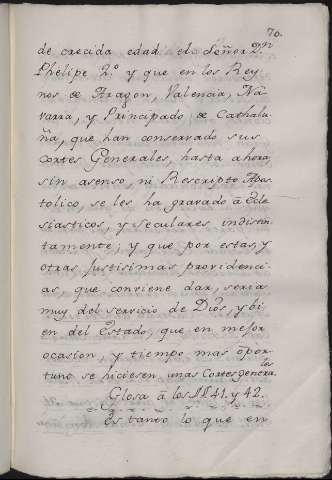 70.
de crecida edad el Señor Dn
Phelipe 2.º y que en los Rey
nos de Aragon, Valencia, Na
varra, y Principado de Cathalu
ña, que han conservado sus
Cortes Generales, hasta ahora,
sin asenso, ni Rescripto Apos
tolico, se les ha gravado â Ecle
siasticos, y Seculares indistin
tamente; y que por estas, y
otras justisimas providenci
as, que conviene dar, seria
muy del servicio de Dios, y bi
en del Estado, que en mejor
ocasion, y tiempo mas opor
tuno se hiciesen unas Cortes generales
Glosa â los §§ 41. y 42.
Es tanto lo que en